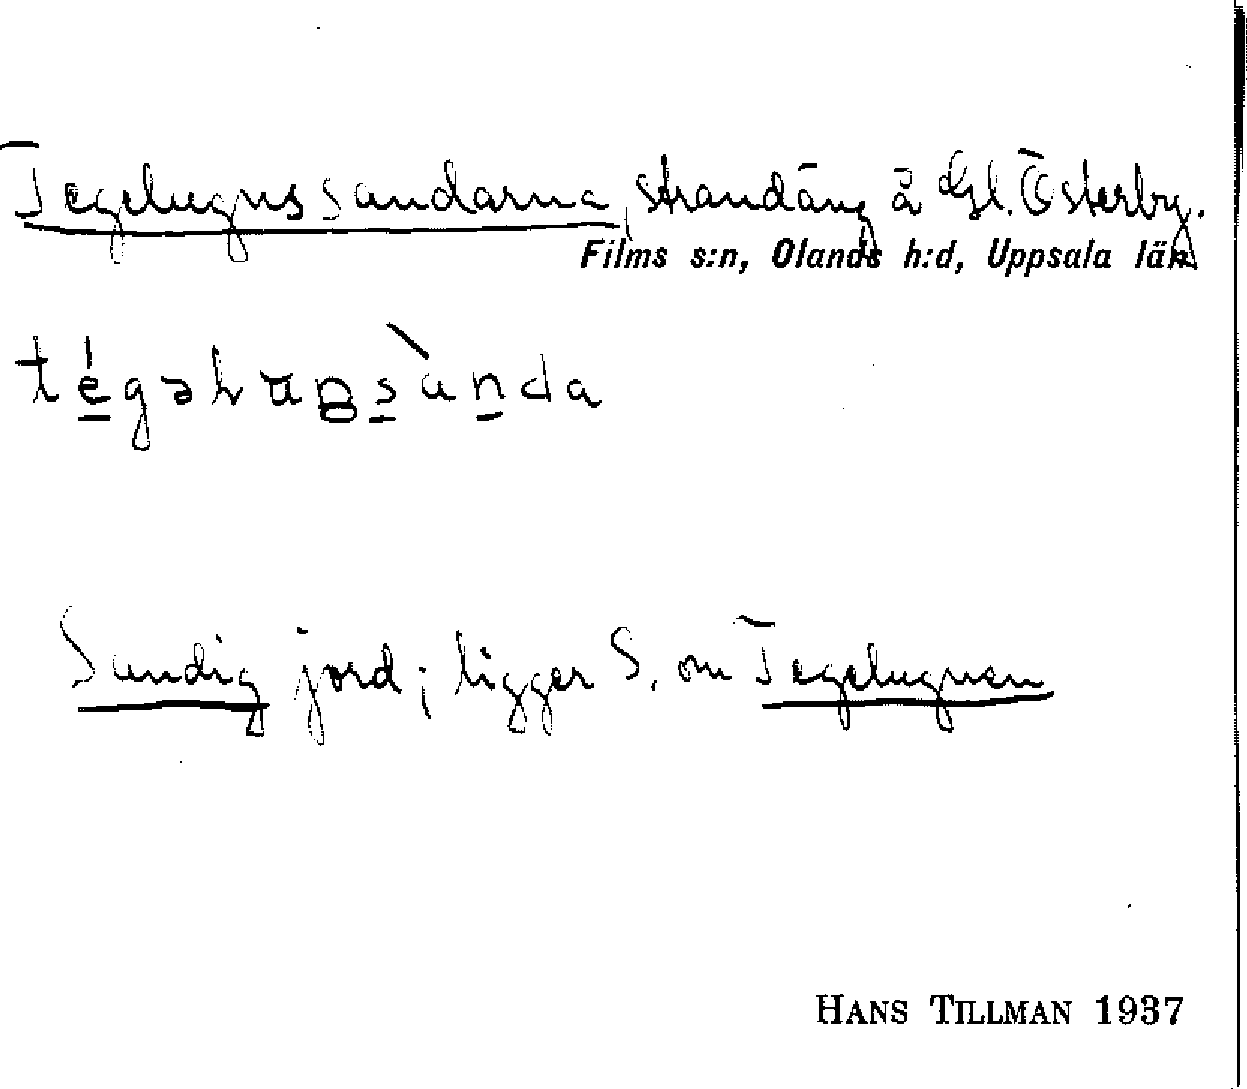 Tegelugnssandarna, strandäng å Gl. Österby.
Films s:n, Olands h:d, Uppsala län
Sandig jord; ligger S. om Tegelugnen
HANS TILLMAN 1937